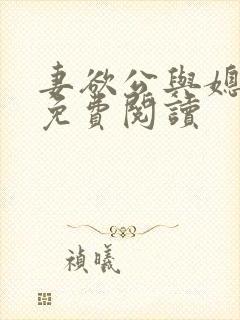 妻欲公與媳
免費閱讀
禎曦